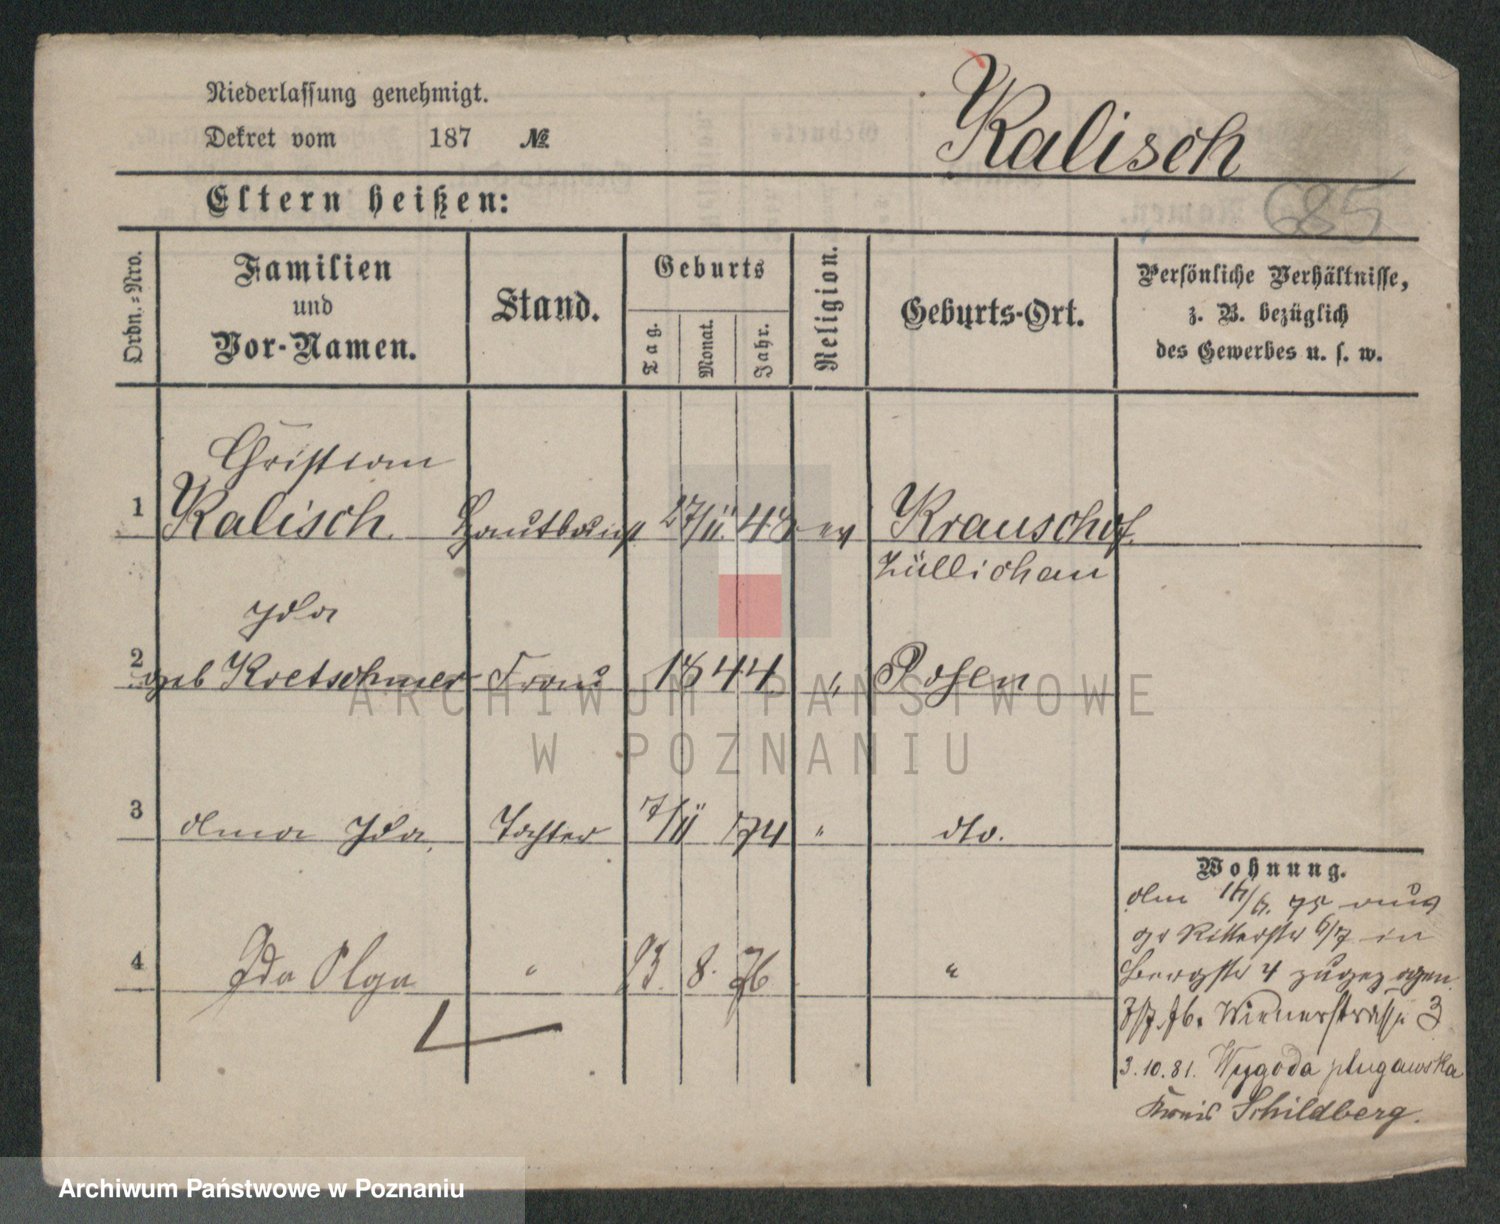 Niederlassung genehmigt.
Dekret vom 187 №
Kalisch
685
Eltern heißen:
Ordn.-Nro.
Familien
und
Vor-Namen.
Stand.
Geburts
Tag.
Monat.
Jahr.
Religion.
Geburts-Ort.
Persönliche Verhältnisse,
z. B. bezüglich
des Gewerbes u. s. w.
Christian
1 Kalisch 27/11. 48 ev Krauschof.
Züllichau
Ida
2 geb Kretschmer Frau 1844 " Posen
3 Ida Tochter 7/11 74 " dto.
4 Ida Olga " 23. 8. 76 "
Wohnung.
75 aus
gr Ritterstr 6/7 in
Bergstr 4 zugezogen
76. Wienerstrasse 3
3.10.81. Wygoda plugawska
Kreis Schildberg.
ARCHIWUM PAŃSTWOWE
W POZNANIU
Archiwum Państwowe w Poznaniu